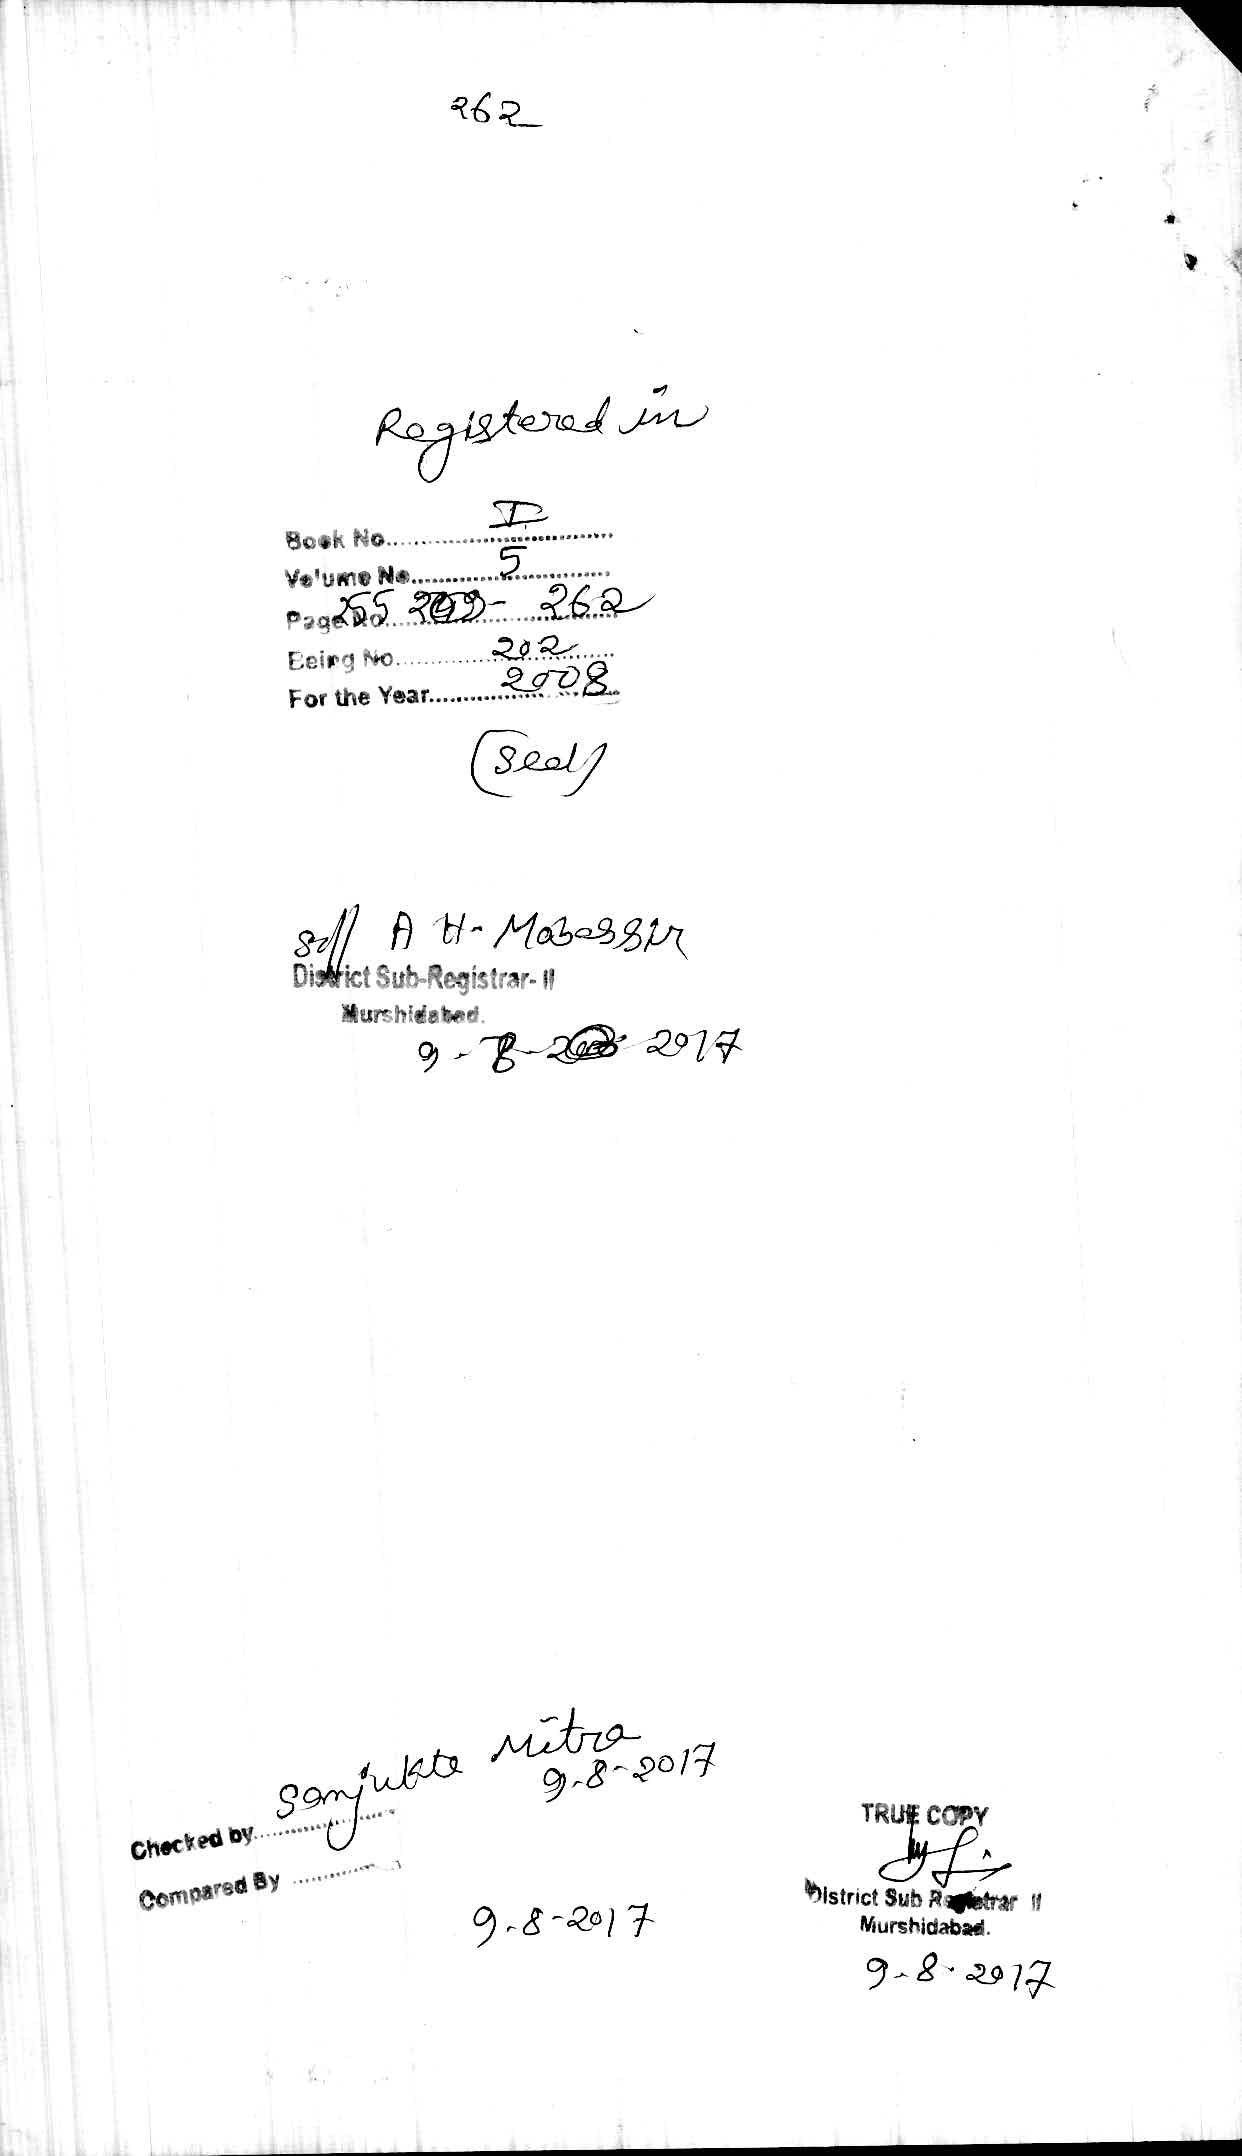 262
Registered in
Book No.............I.............
Volume No.............5.............
Page No. 255 - 262
Being No.............202.............
For the Year.............2008.............
(Seal)
Sd// A H- Mobassir
District Sub-Registrar- II
Murshidabad.
9 - 8 - 2017
Sanjukta Mitra
9-8-2017
Checked by.............
Compared By .............
9-8-2017
TRUE COPY
District Sub Registrar II
Murshidabad.
9-8-2017